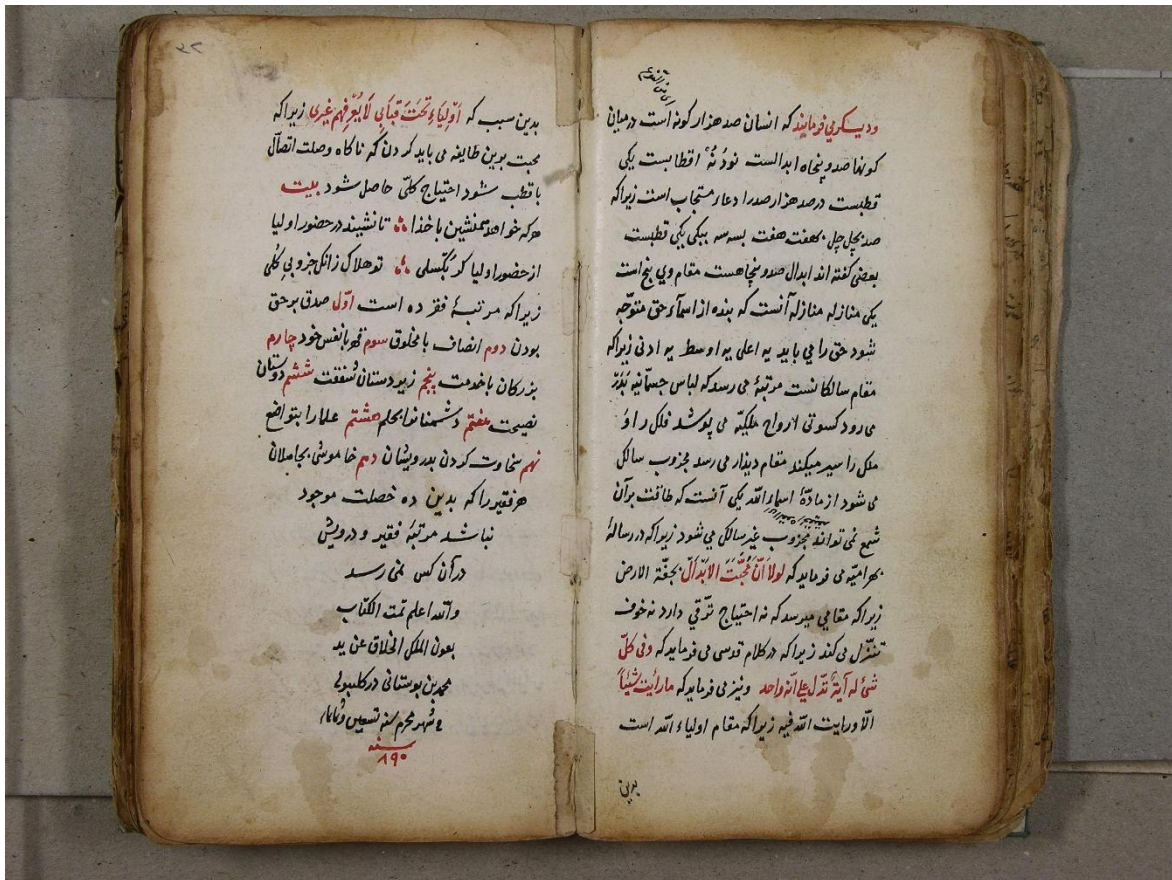 و دیگر می فرمایند که انسان صد هزار کونه است در میان
کونها صد و پنجاه ابدالست نود نُهٔ اقطابست یکی
قطبست در صد هزار صد را دعاء مستجاب است زیراکه
صد بچل چل بهفت هفت بسه سه بیکی یکی قطبست
بعضی کفته اند ابدال صد و پنجاهست مقام وی پنج است
یکی منازله منازله آنست که بنده از اسمآء حق متوجّه
شود حق را می یابد یه اعلی یه اوسط یه ادنی زیراکه
مقام سالکانست مرتبهٔ می رسد که لباس جسمانیه
می رود کسوتی ارواح ملکیّه می پوشد فلک را و
ملک را سیر میکند مقام دیدار می رسد مجزوب سالک
می شود از مادّهٔ اسماء اللّه یکی آنست که طاقت برآن
شمع نمی تواند مجزوب غیر سالک می شود زیراکه در رسالهٔ
بهرامیّه می فرماید که لولا انّ الابدال الارض
زیراکه مقامی میرسد که نه احتیاج ترّقی دارد نه خوف
تنزّل می کند زیراکه در کلام قدسی می فرماید که و فی کلّ
شئ له آیة تدل علی انّه واحد و نیز می فرماید که مارأیت شیئاً
الّا و رایت اللّه فیه زیراکه مقام اولیاء اللّه است
بدین
٣٢
بدین سبب که اَوْلِیَاءِ تَحْتَ قَبَابِی لَا یُعْرِفهم غیری زیراکه
محبت بدین طایفه می باید کردن که ناکاه وصلت اتصالّ
با قطب شود احتیاج کلّی حاصل شود بیت
هر که خواهد همنشین با خذا تا نشیند در حضور اولیا
از حضور اولیا کر بکسلی تو هلاک زانک جزو بی کُلی
زیراکه مرتبهٔ فقر ده است اوّل صدق بر حق
بودن دوم انصاف با مخلوق سوم قهر با نفس خود چارم
بزرکان با خدمت پنجم زیردستان شفقت ششم دوستان
نصیحت هفتم دشمنانرا بحلم هشتم علما را بتواضع
نهم سخاوت کردن بدرویشان دهم خاموشی بجاهلان
هر فقیر را که بدین ده خصلت موجود
نباشد مرتبهٔ فقیر و درویش
در آن کس نمی رسد
و اللّه اعلم تمت الکتاب
بعون الملک الخلاق عن ید
محمد بن بوستانی در کلیبولی
فی شهر محرم سنه تسعین و ثمانمایه
سنه
٨٩٠